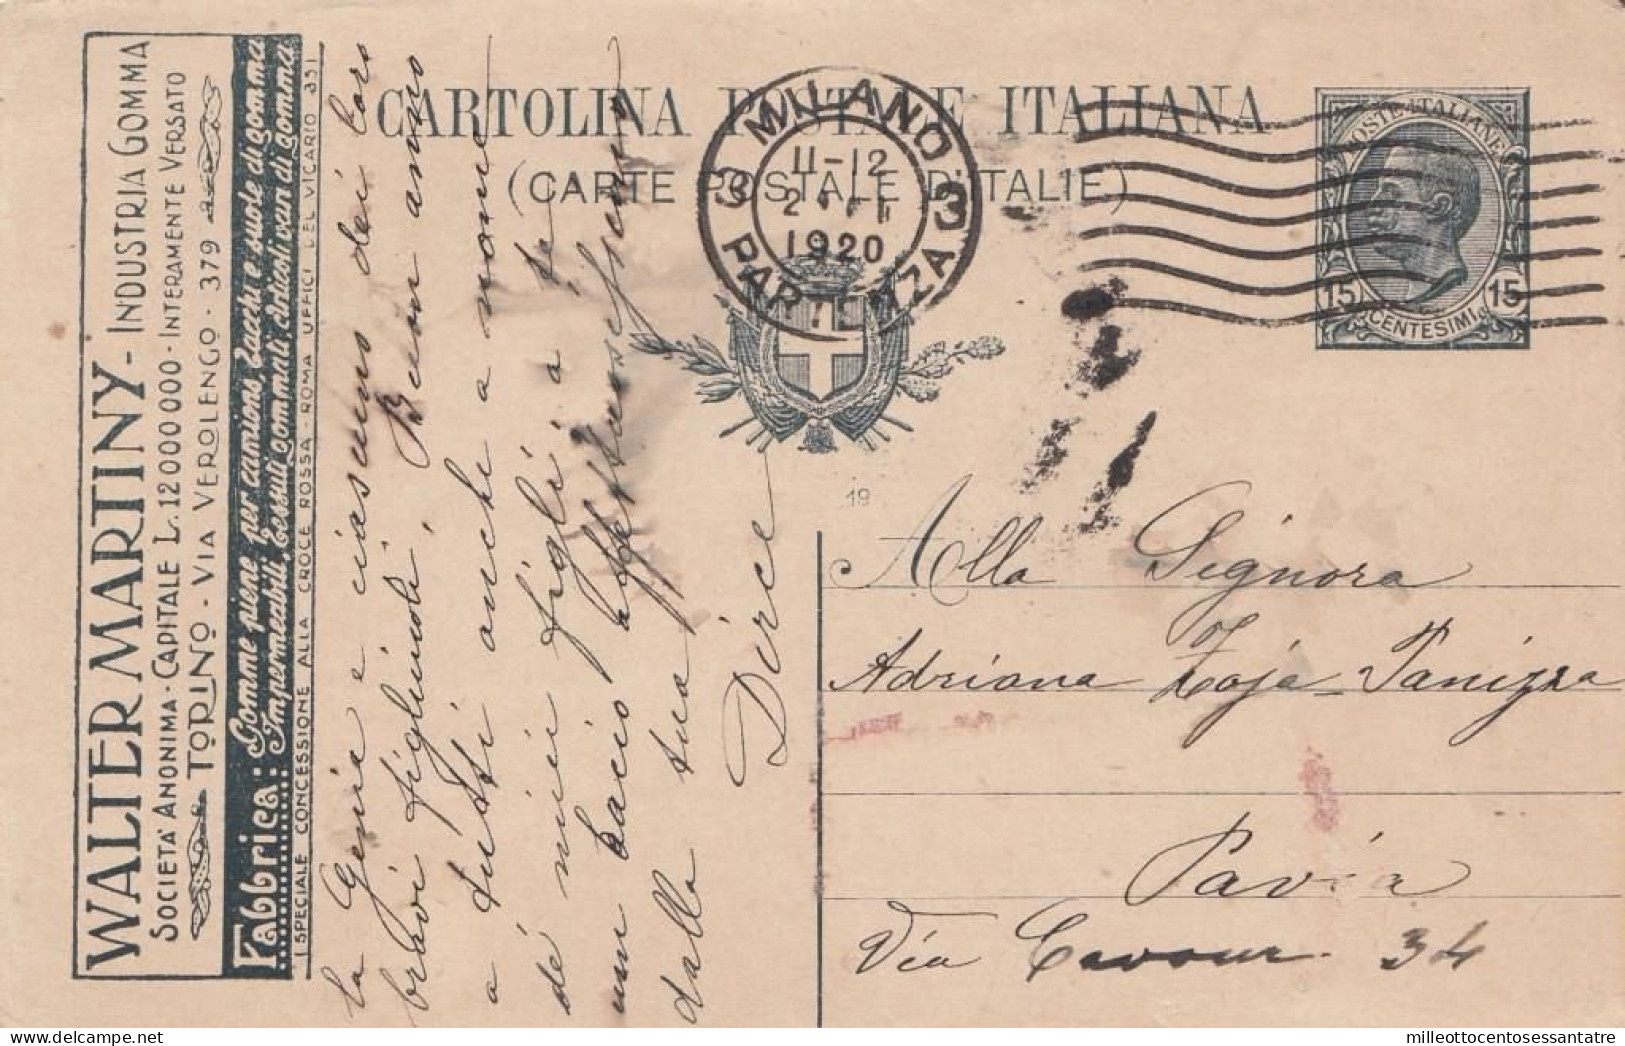 WALTER MARTINY - INDUSTRIA GOMMA
SOCIETA' ANONIMA - CAPITALE L. 12000000 - INTERAMENTE VERSATO
TORINO - VIA VEROLENGO - 379
Fabbrica: Gomme piene per camions, Tacchi e suole di gomma
Impermeabili, Tessuti gommati, Articoli vari di gomma
SPECIALE CONCESSIONE ALLA CROCE ROSSA - ROMA UFFICI DEL VICARIO 35
CARTOLINA POSTALE ITALIANA
(CARTE POSTALE D'ITALIE)
MILANO
3 3
11-12
1920
PARTENZA
POSTE ITALIANE
15 15
CENTESIMI
19
la Genia e ciascuno dei loro
bravi figliuoli. Buon anno
a tutti anche a nome
dei miei figli a te
un bacio affettuosissimo
dalla tua
Dirce
Alla Signora
Adriana Toja-Panizza
Pavia
Via Cavour. 34
milleottocentosessantatre
delcampe.net